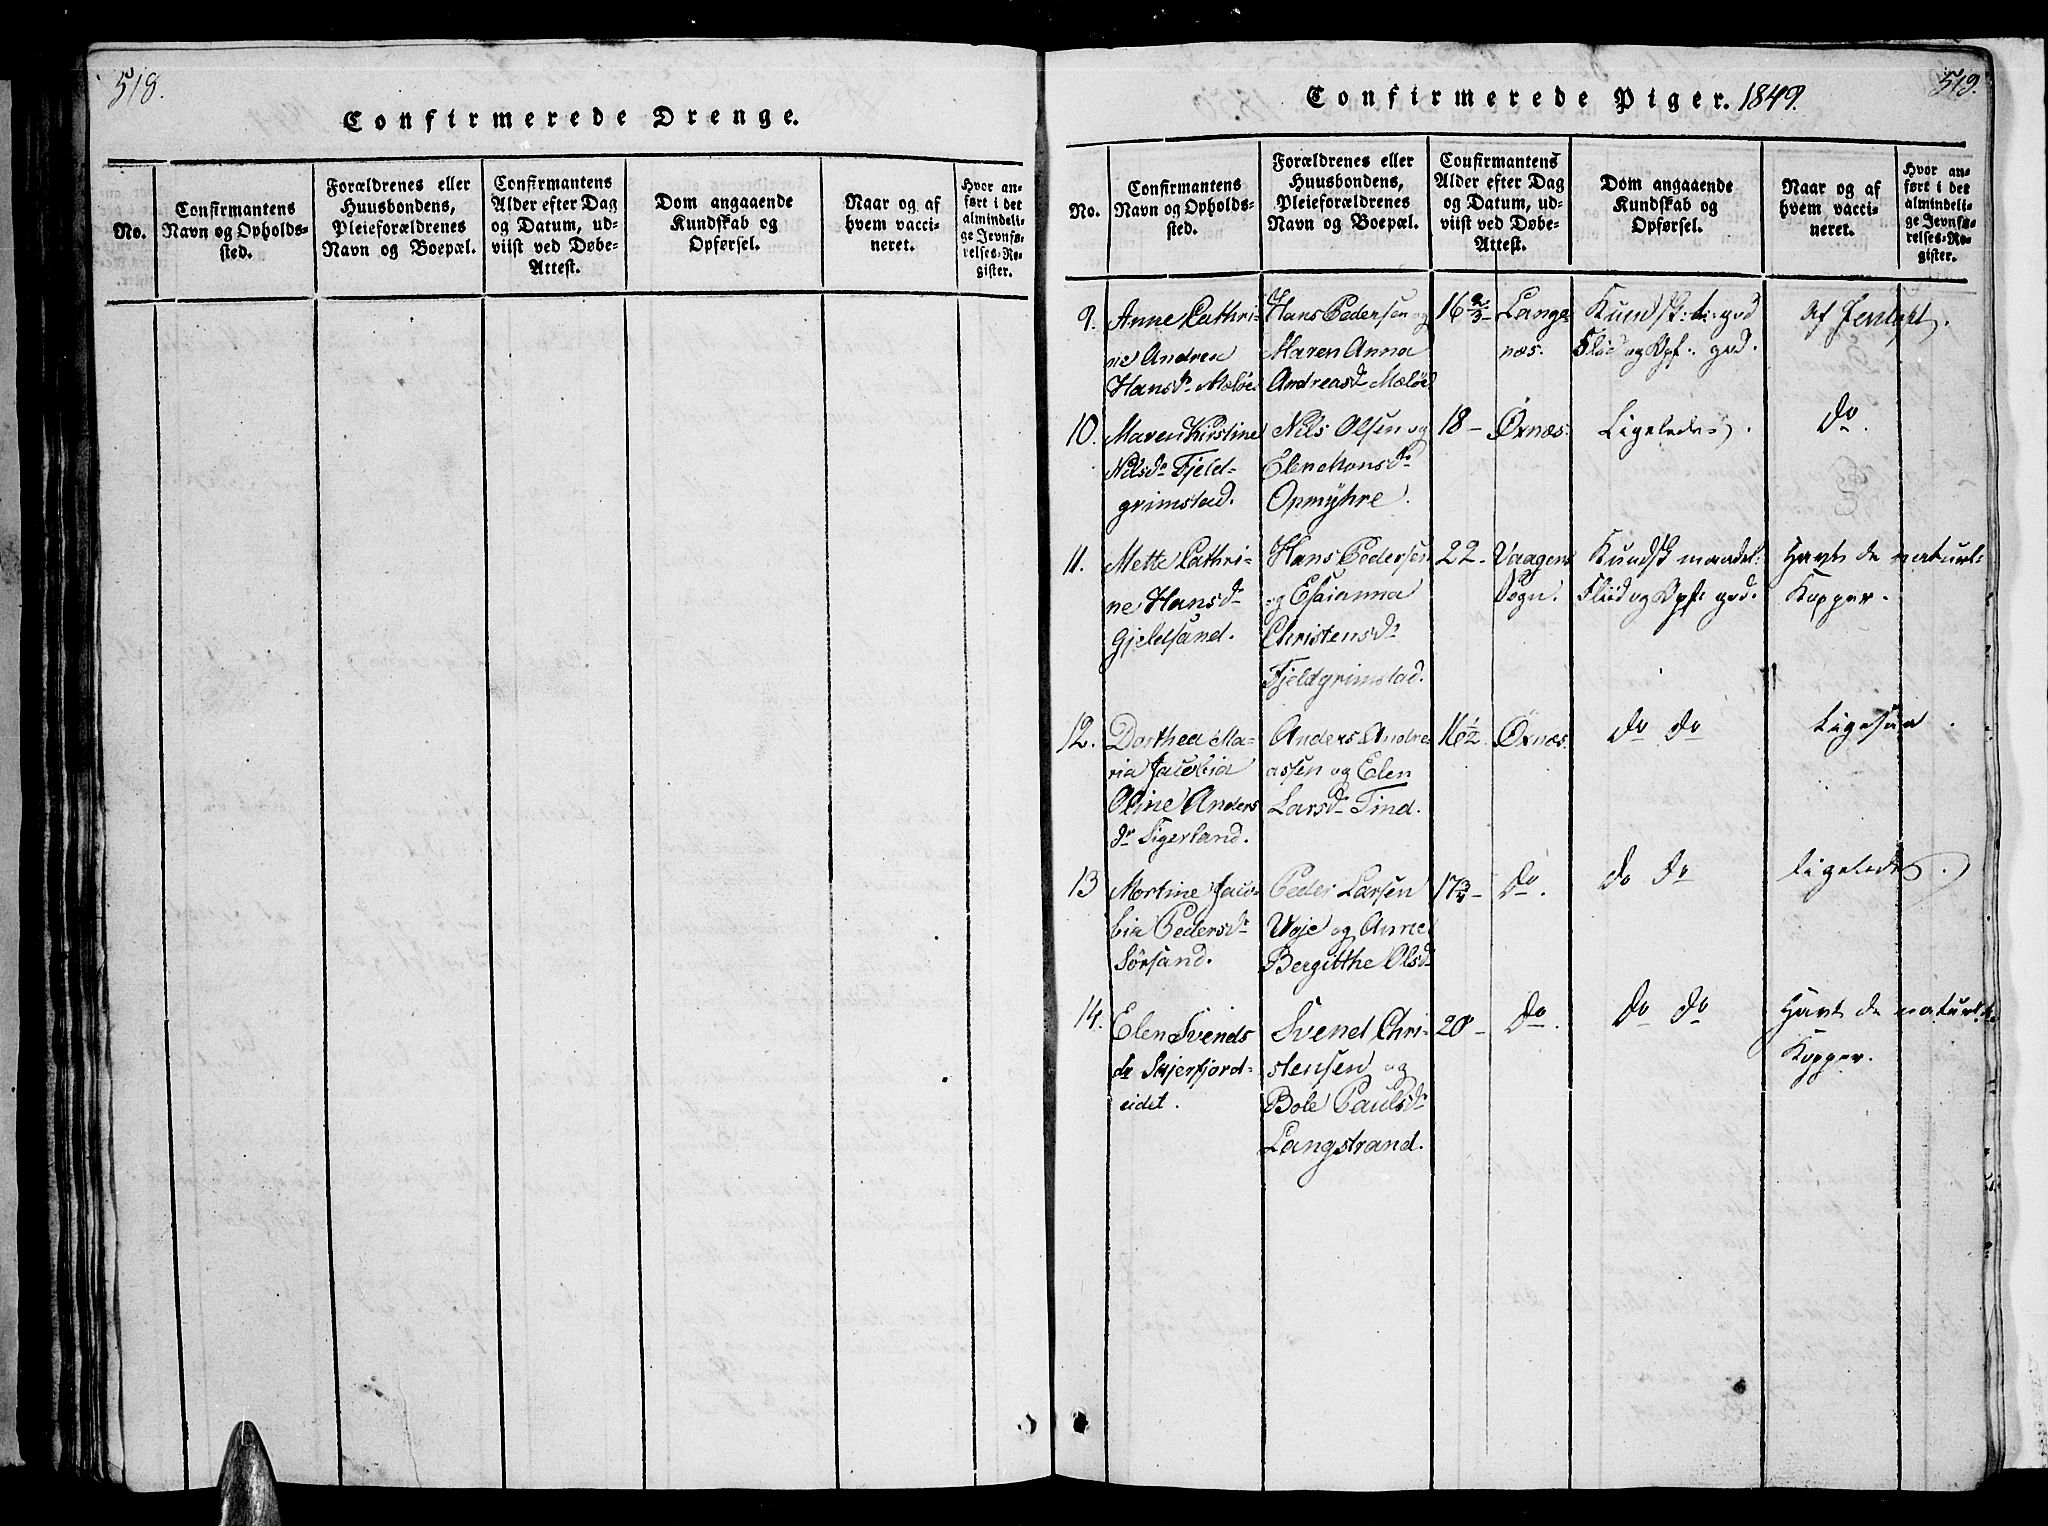 518.
Confirmerede Drenge.
No.
Confirmantens
Navn og Opholds-
sted.
Forældrenes eller
Huusbondens,
Pleieforældrenes
Navn og Boepæl.
Confirmantens
Alder efter Dag
og Datum, ud-
viist ved Døbe-
Attest.
Dom angaaende
Kundskab og
Opførsel.
Naar og af
hvem vacci-
neret.
Hvor an-
ført i det
almindeli-
ge Jevnfø-
relses-Re-
gister.
519.
Confirmerede Piger. 1849.
No.
Confirmantens
Navn og Opholds-
sted.
Forældrenes eller
Huusbondens,
Pleieforældrenes
Navn og Boepæl.
Confirmantens
Alder efter Dag
og Datum, ud-
viist ved Døbe-
Attest.
Dom angaaende
Kundskab og
Opførsel.
Naar og af
hvem vacci-
neret.
Hvor an-
ført i det
almindeli-
ge Jevnfø-
relses-Re-
gister.
9.
Anne Cathri-
ne Andrea
Hansdr Meløe
Hans Pedersen og
Maren Anna
Andreasdr Meløe
16 2/3 -
Lange-
næs.
Kundsk: t: god
Fliid og Opf: god.
Af
10.
Maren Kirstine
Nilsdr Fjeld-
grimstad.
Nils Olsen og
Elen Monsdr
Opmyhre.
18 -
Øxnæs.
Ligeledes.
do.
11.
Mette Cathri-
ne Hansdr
Gjeldsand.
Hans Pedersen
og Esaianna
Christensdr
Fjeldgrimstad.
22 -
Vaagens
Sogn.
Kundsk maadel:
Fliid og Opf: god.
Havt de naturl:
Kopper.
12.
Dorthea Ma-
ria Jacobia
Oline Anders
dr Tigerland.
Anders Andre-
assen og Elen
Larsdr Tind.
16 1/2.
Øxnæs.
do do
Ligesaa.
13
Mortine Jaco-
bia Pedersdr
Sørsand.
Peder Larsen
Vaje og Anne
Bergitthe Olsdr
17 3/4 -
do.
do do
ligeledes.
14.
Elen Svends
dr Skjerfjord-
eidet.
Svend Chri-
stensen og
Bole Paulsdr
Langstrand.
20 -
do.
do do
Havt de naturl:
Kopper.